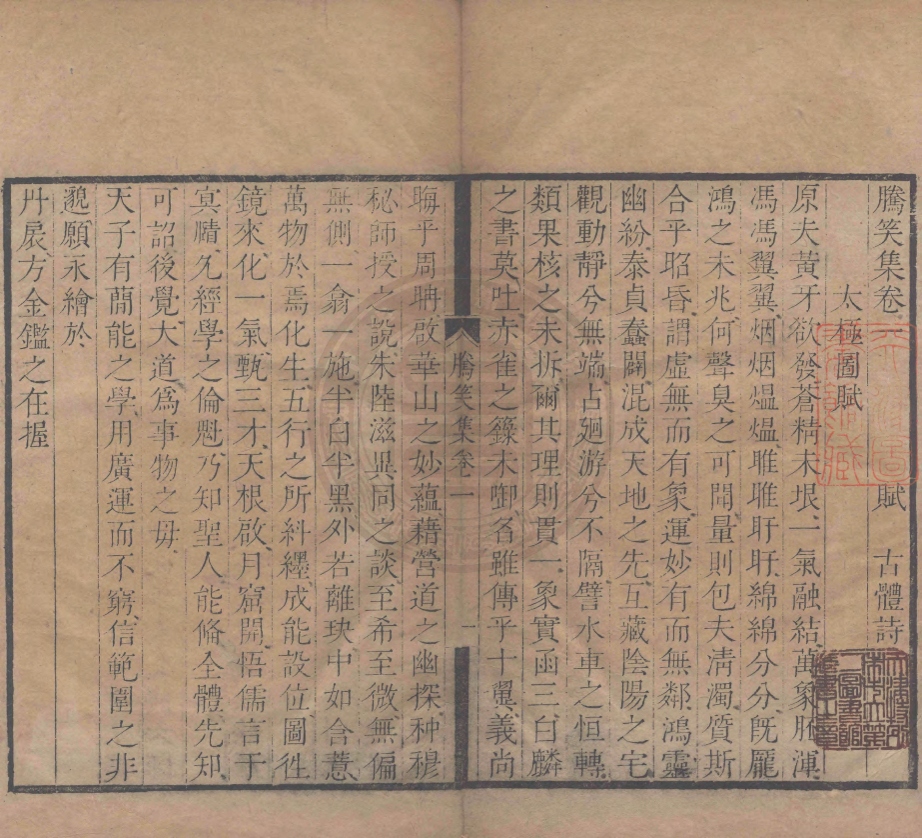 騰笑集卷一　　　　賦　古體詩
太極圖賦
原夫黃牙欲發蒼精未垠一氣融結萬象胚渾
馮馮翼翼烟烟熅熅睢睢盱盱綿綿分分旣厖
鴻之未兆何聲臭之可聞量則包夫淸濁質斯
合乎昭昏謂虛無而有象運妙有而無鄰鴻靈
幽紛泰貞蠢闢混成天地之先互藏陰陽之宅
觀動靜兮無端占廻游兮不隔譬水車之恒轉
類果核之未拆爾其理則貫一象實函三白麟
之書莫吐赤雀之籙未啣名雖傳乎十翼義尚
騰笑集卷一　一
晦乎周聃啟華山之妙蘊藉營道之幽探种穆
秘師授之說朱陸滋異同之談至希至微無偏
無側一翕一施半白半黑外若離玦中如含薏
萬物於焉化生五行之所糾纆成能設位圖徃
鏡來化一氣甄三才天根啟月窟開悟儒言于
冥賾允經學之倫魁乃知聖人能脩全體先知
可詔後覺大道爲事物之毋
天子有𥳑能之學用廣運而不窮信範圍之非
邈願永繪於
丹扆方金鑑之在握